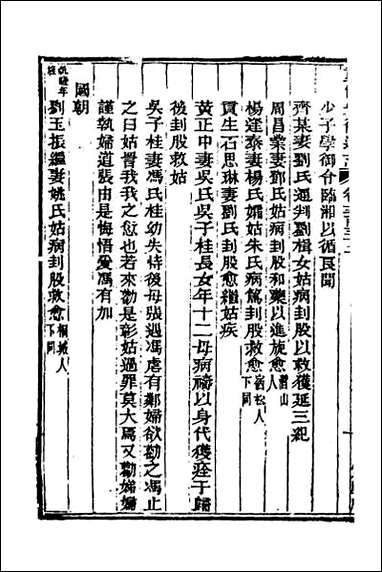 少子學御令臨湘以循良聞
齊某妻劉氏通判劉楫女姑病刲股以救獲延三紀
周昌業妻鄧氏姑病刲股和藥以進旋愈灊山人
楊逢泰妻楊氏孀姑朱氏病篤刲股救愈宿松人下同
貢生石思琳妻劉氏刲股愈繼姑疾
黃正中妻吳氏吳子桂長女年十二母病禱以身代獲痊于歸
後刲股救姑
吳子桂妻馮氏桂幼失恃後母張遇馮虐有鄰婦欲勸之馮止
之曰姑詈我我之愆也若來勸是彰姑過罪莫大焉又勸娣婦
謹執婦道張由是悔悟愛馮有加
國朝
劉玉振繼妻姚氏姑病刲股救愈桐城人下同